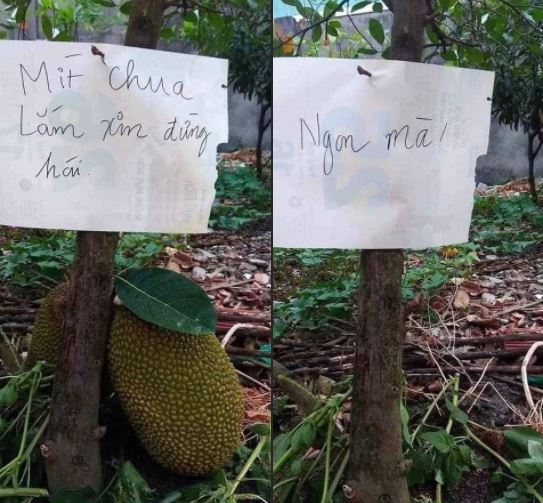 Mít chua
Lắm xin đừng
hái.
Ngon mà!